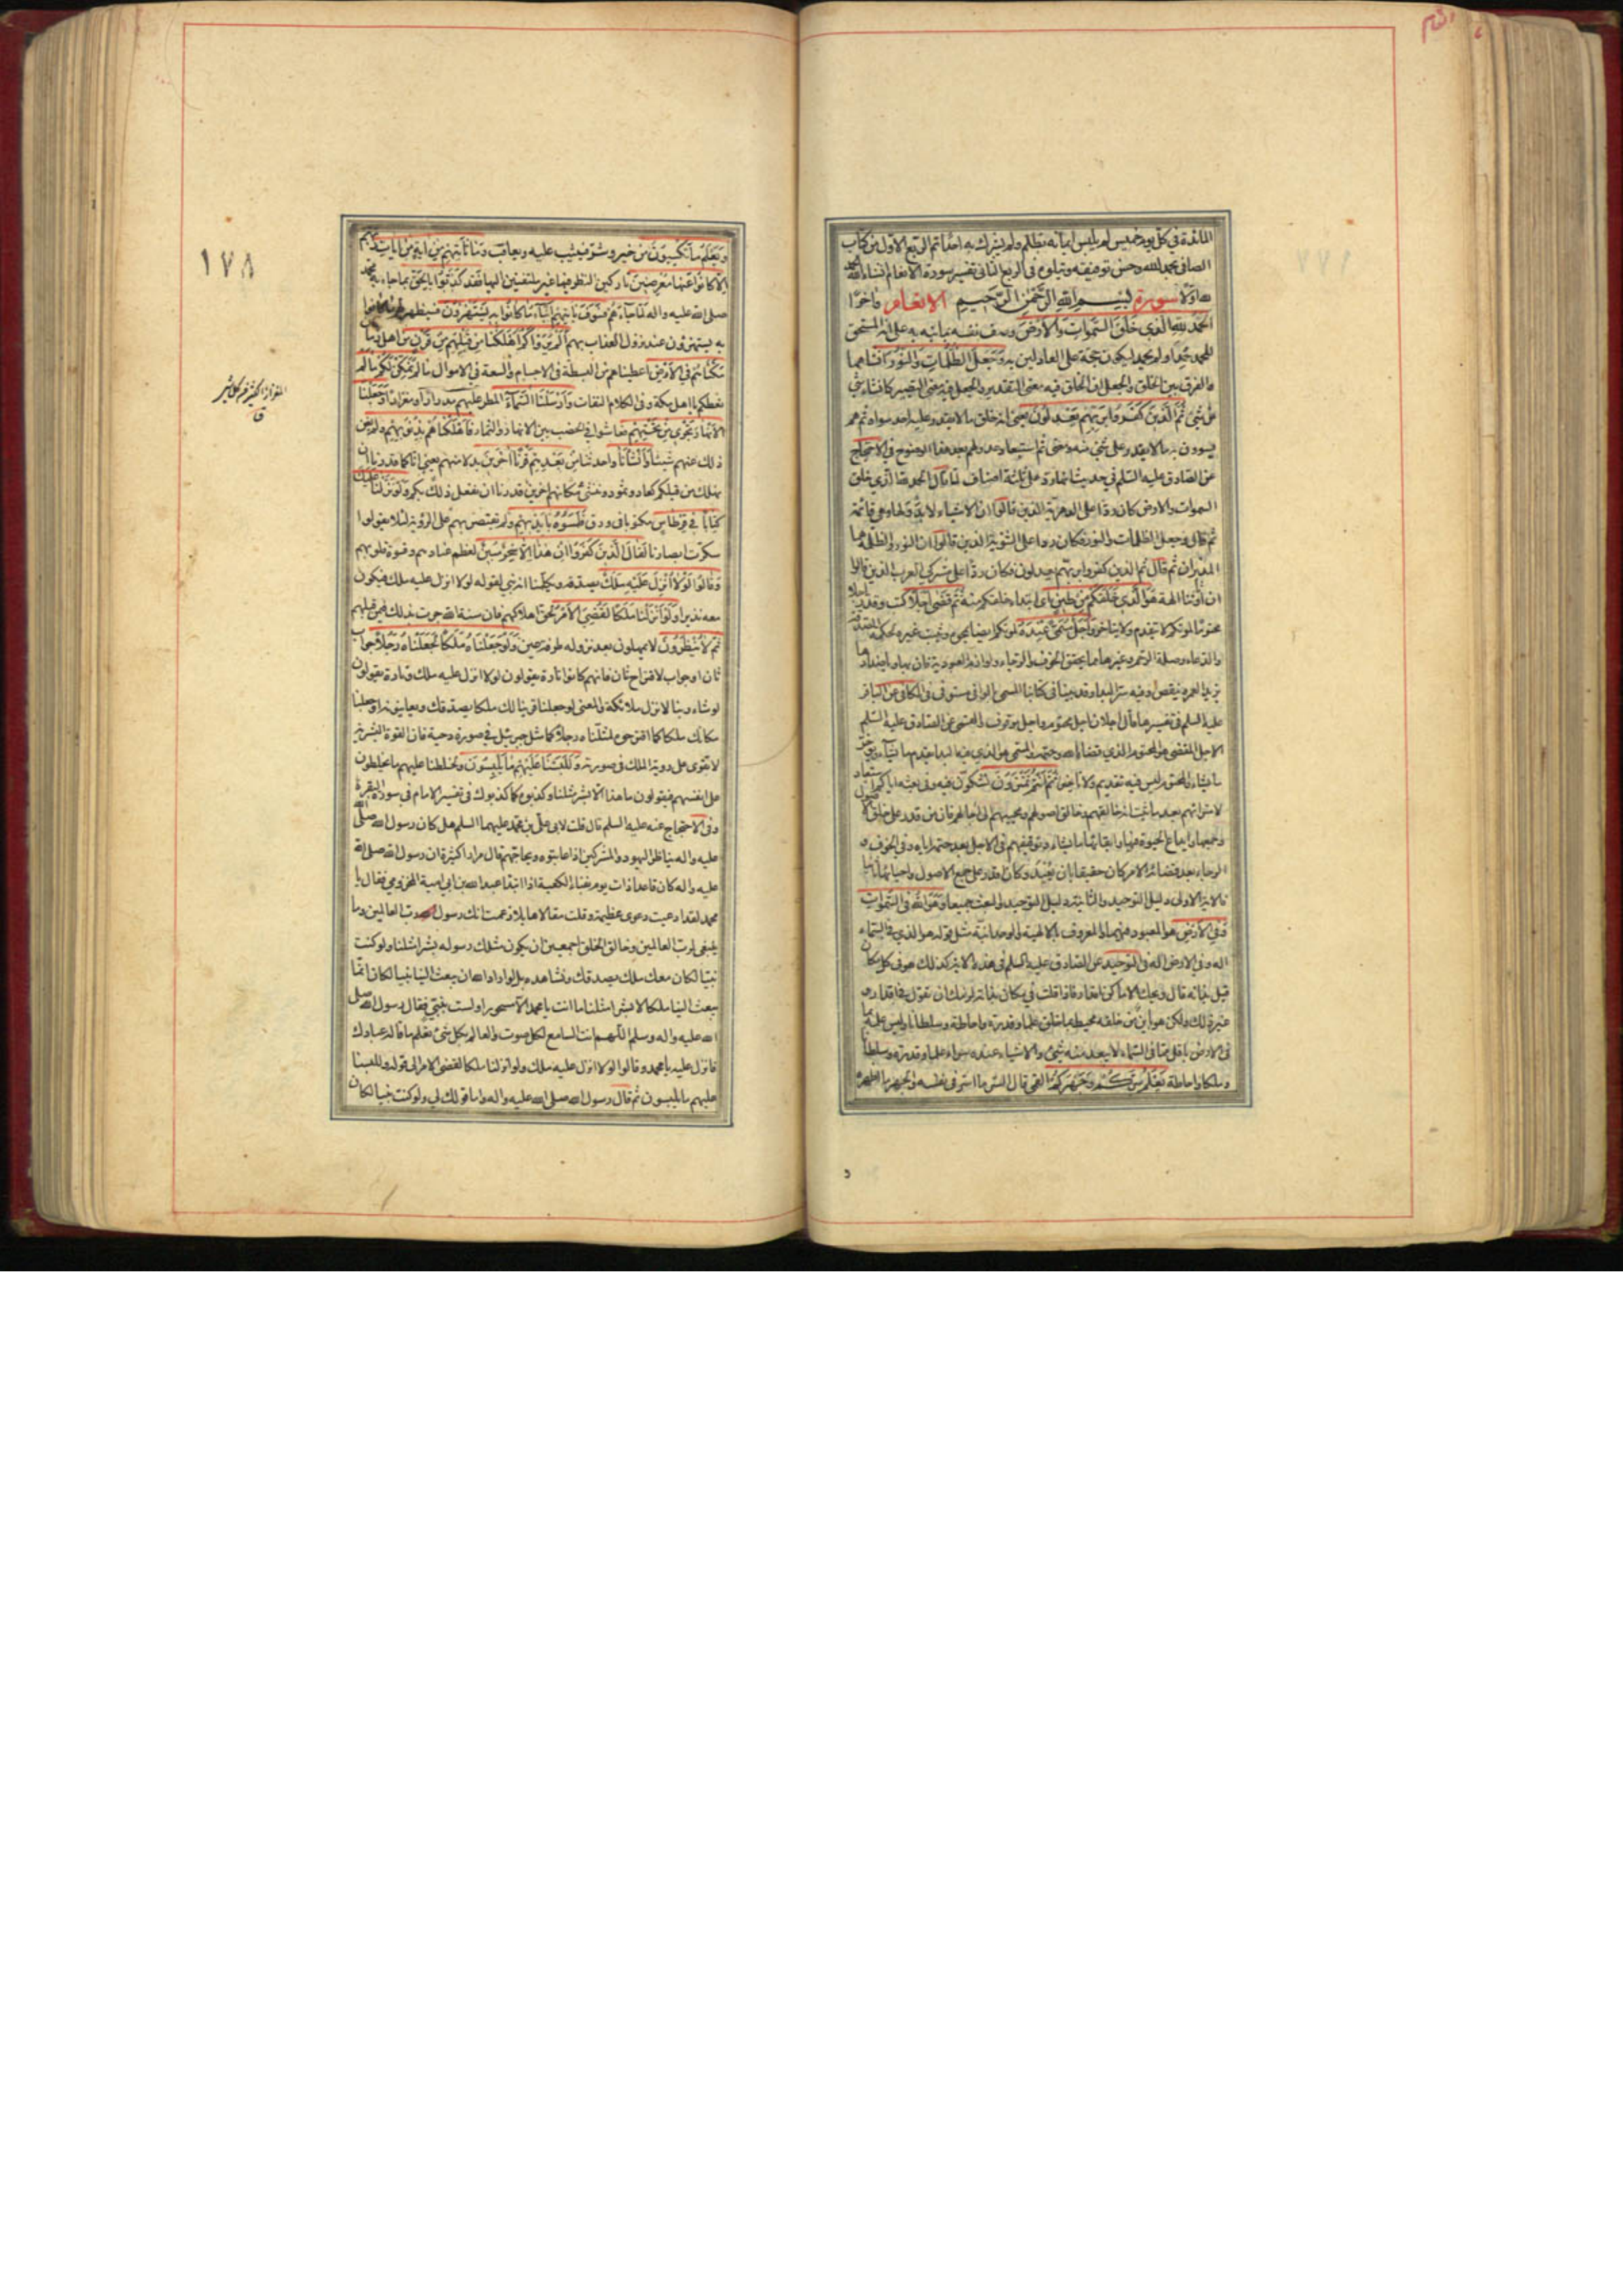 المائدة في كل يوم خميس لم يلبس ايمانه بظلم ولم يشرك به احدا تم الربع الاول من كتاب
الصافي بحمد الله وحسن توفيقه ويتلوه في الربع الثاني تفسير سورة الانعام انشاء الله والحمد
لله اولا سورة بسم الله الرحمن الرحيم الانعام واخرا
الحمد لله الذي خلق السموات والارض وصف نفسه بما نبه به على انه المستحق
للحمد حمد او لم يحمد ليكون حجة على العادلين به وجعل الظلمات والنور انشاهما
والفرق بين الخلق والجعل ان الخلق فيه معنى التقدير والجعل فيه معنى التصيير كانشاء شيء
من شيء ثم الذين كفروا بربهم يعدلون يعني انه خلق ما لا يقدر عليه احد سواه ثم هم
يسوون به ما لا يقدر على شيء منه ومعنى ثم استبعاد عدولهم بعد هذا الوضوح في الاحتجاج
عن الصادق عليه السلم في حديث انها رد على ثلثة اصناف لما قال الحمد لله الذي خلق
السموات والارض كان ردا على الدهرية الذين قالوا ان الاشياء لا بدو لها وهي قائمة
ثم قال وجعل الظلمات والنور فكان ردا على الثنوية الذين قالوا ان النور والظلمة هما
المدبران ثم قال ثم الذين كفروا بربهم يعدلون فكان ردا على مشركي العرب الذين قالوا
ان اوثاننا الهة هو الذي خلقكم من طين اي ابتداء خلقكم منه ثم قضى اجلا كتب وقدر اجلا
محتوما لموتكم لا يتقدم ولا يتاخر واجل مسمى عنده لموتكم ايضا يمحوه ويثبت غيره لحكمة الصدقة
والدعاء وصلة الرحم وغيرها مما يحقق الخوف والرجاء ولوازم العبودية فان بها وباضدادها
يزيد العمر وينقص وفيه سر البداء وقد بينا في كتابنا المسمى بالوافي مستوفى في الكافي عن الباقر
عليه السلم في تفسيرها قال اجلان اجل محتوم واجل موقوف والقمي عن الصادق عليه السلم
الاجل المقضي هو المحتوم الذي قضاه الله وحتمه والمسمى هو الذي فيه البداء يقدم ما يشاء ويؤخر
ما يشاء والمحتوم ليس فيه تقديم ولا تاخير ثم انتم تمترون تشكون فيه وفي بعثه اياكم استبعاد
لامترائهم بعد ما ثبت انه خالقهم وخالق اصولهم ومحييهم الى اجالهم فان من قدر على خلق الاصول
وجمعها وايداع الحيوة فيها وابقائها ما يشاء وتوقيفهم في الاجل بعد حتمه اياه وفي الخوف و
الرجاء بعد قضائه الامر كان حقيقا بان يعبد وكان اقدر على جمع الاصول واحيائها ثانيا
فالاية الاولى دليل التوحيد والثانية دليل التوحيد والبعث جميعا وهو الله في السموات
وفي الارض هو المعبود فيهما والمعروف بالالهية والوحدانية مثل قوله هو الذي في السماء
اله وفي الارض اله في التوحيد عن الصادق عليه السلم في هذه الاية كذلك هو في كل مكان
قيل بذاته قال ويحك الاماكن اقدار فاذا قلت في مكان بذاته لزمك ان تقول في اقدار و
غير ذلك ولكن هو باين من خلقه محيط بما خلق علما وقدرة واحاطة وسلطانا وليس علمه بما
في الارض باقل مما في السماء لا يبعد منه شيء والاشياء عنده سواء علما وقدرة وسلطانا
وملكا واحاطة يعلم سركم وجهركم القمي قال السر ما اسر في نفسه والجهر ما اظهره
ويعلم ما تكسبون من خير وشر فيثيب عليه ويعاقب وما تاتيهم من اية من ايات ربهم
الا كانوا عنها معرضين تاركين للنظر فيها غير ملتفتين اليها فقد كذبوا بالحق بما جاء به محمد
صلى الله عليه واله لما جاءهم فسوف ياتيهم انباء ما كانوا به يستهزؤن فسيظهر لهم ما كانوا
به يستهزؤن عند نزول العذاب بهم الم يروا كم اهلكنا من قبلهم من قرن من اهل زمان
مكناهم في الارض اعطيناهم من البسطة في الاجسام والسعة في الاموال ما لم نمكن لكم ما لم
نعطكم يا اهل مكة وفي الكلام التفات وارسلنا السماء المطر عليهم مدرارا مغزارا وجعلنا
الانهار تجري من تحتهم فعاشوا في الخصب بين الانهار والثمار فاهلكناهم بذنوبهم ولم يغن
ذلك عنهم شيئا وانشأنا واحدثنا من بعدهم قرنا اخرين بدلا منهم يعني انا كما قدرنا ان
نهلك من قبلكم كعاد وثمود وننشئ مكانهم اخرين قدرنا ان نفعل ذلك بكم ولو نزلنا عليك
كتابا في قرطاس مكتوبا في ورق فلمسوه بايديهم ولم يقتصر بهم على الرؤية لئلا يقولوا
سكرت ابصارنا لقال الذين كفروا ان هذا الا سحر مبين لعظم عنادهم وقسوة قلوبهم
وقالوا لولا انزل عليه ملك يصدقه ويكلمنا انه نبي لقوله لولا انزل عليه ملك فيكون
معه نذيرا ولو انزلنا ملكا لقضي الامر لحق اهلاكهم فان سنة الله جرت بذلك فيمن قبلهم
ثم لا ينظرون لا يمهلون بعد نزوله طرفة عين ولو جعلناه ملكا لجعلناه رجلا جواب
ثان او جواب لاقتراح ثان فانهم كانوا تارة يقولون لولا انزل عليه ملك وتارة يقولون
لو شاء ربنا لانزل ملائكة والمعنى لو جعلنا قرينا لك ملكا يصدقك ويعاينونه او جعلنا
مكانك ملكا كما اقترحوه لمثلناه رجلا كما مثل جبرئيل في صورة دحية فان القوة البشرية
لا تقوى على رؤية الملك في صورته وللبسنا عليهم ما يلبسون ولخلطنا عليهم ما يخلطون
على انفسهم فيقولون ما هذا الا بشر مثلنا وكذبوه كما كذبوك في تفسير الامام في سورة البقرة
وفي الاحتجاج عنه عليه السلم قال قلت لابي علي بن محمد عليهما السلم هل كان رسول الله صلى الله
عليه واله يناظر اليهود والمشركين اذا عاتبوه ويحاجهم قال مرارا كثيرة ان رسول الله صلى الله
عليه واله كان قاعدا ذات يوم بفناء الكعبة اذا ابتدا عبد الله بن ابي امية المخزومي فقال يا
محمد لقد ادعيت دعوى عظيمة وقلت مقالا هايلا زعمت انك رسول رب العالمين وما
ينبغي لرب العالمين وخالق الخلق اجمعين ان يكون مثلك رسوله بشرا مثلنا ولو كنت
نبيا لكان معك ملك يصدقك ونشاهده بل لو اراد الله ان يبعث الينا نبيا لكان انما
يبعث الينا ملكا لا بشرا مثلنا ما انت يا محمد الا مسحورا ولست بنبي فقال رسول الله صلى
الله عليه واله وسلم اللهم انت السامع لكل صوت والعالم بكل شيء تعلم ما قاله عبادك
فانزل عليه يا محمد وقالوا لولا انزل عليه ملك ولو انزلنا ملكا لقضي الامر الى قوله وللبسنا
عليهم ما يلبسون ثم قال رسول الله صلى الله عليه واله واما قولك لي ولو كنت نبيا لكان
١٧٨